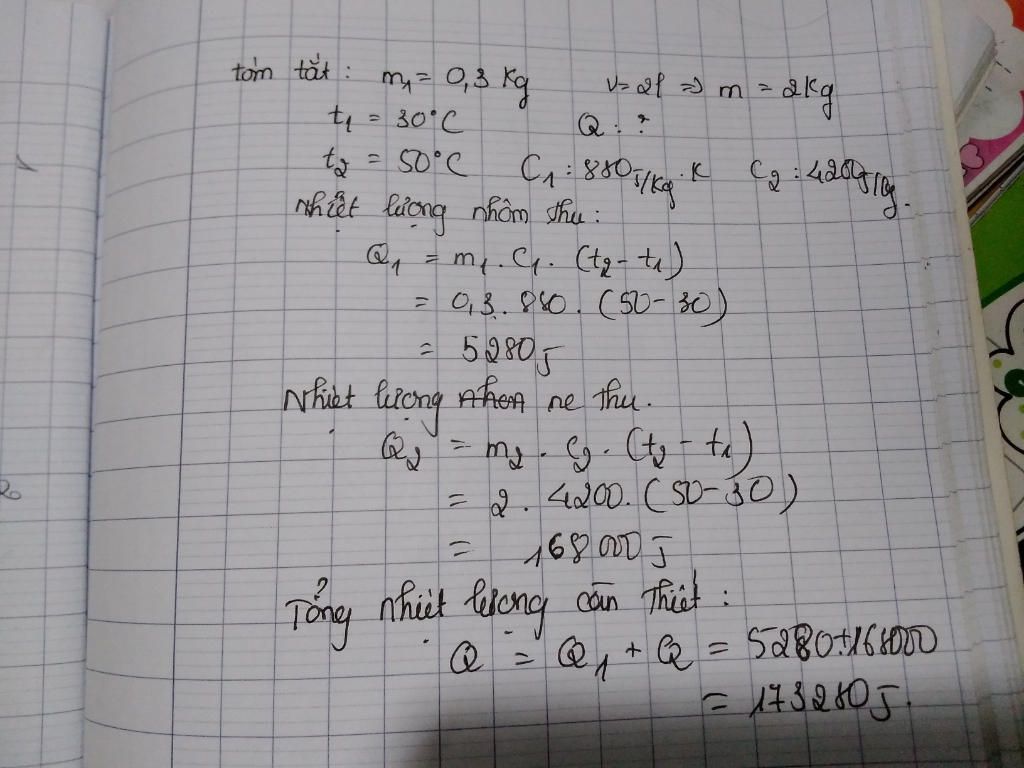 tóm tắt: m₁ = 0,3 Kg V=2l => m = 2Kg
t₁ = 30°C Q: ?
t₂ = 50°C C₁: 880J/Kg.K C₂: 4200J/Kg.
Nhiệt lượng nhôm thu:
Q₁ = m₁ . C₁ . (t₂ - t₁)
= 0,3 . 880 . (50-30)
= 5280J
Nhiệt lượng nc thu.
Q₂ = m₂ . C₂ . (t₂ - t₁)
= 2 . 4200 . (50-30)
= 168000J
Tổng nhiệt lượng cần thiết:
Q = Q₁ + Q = 5280+168000
= 173280J.